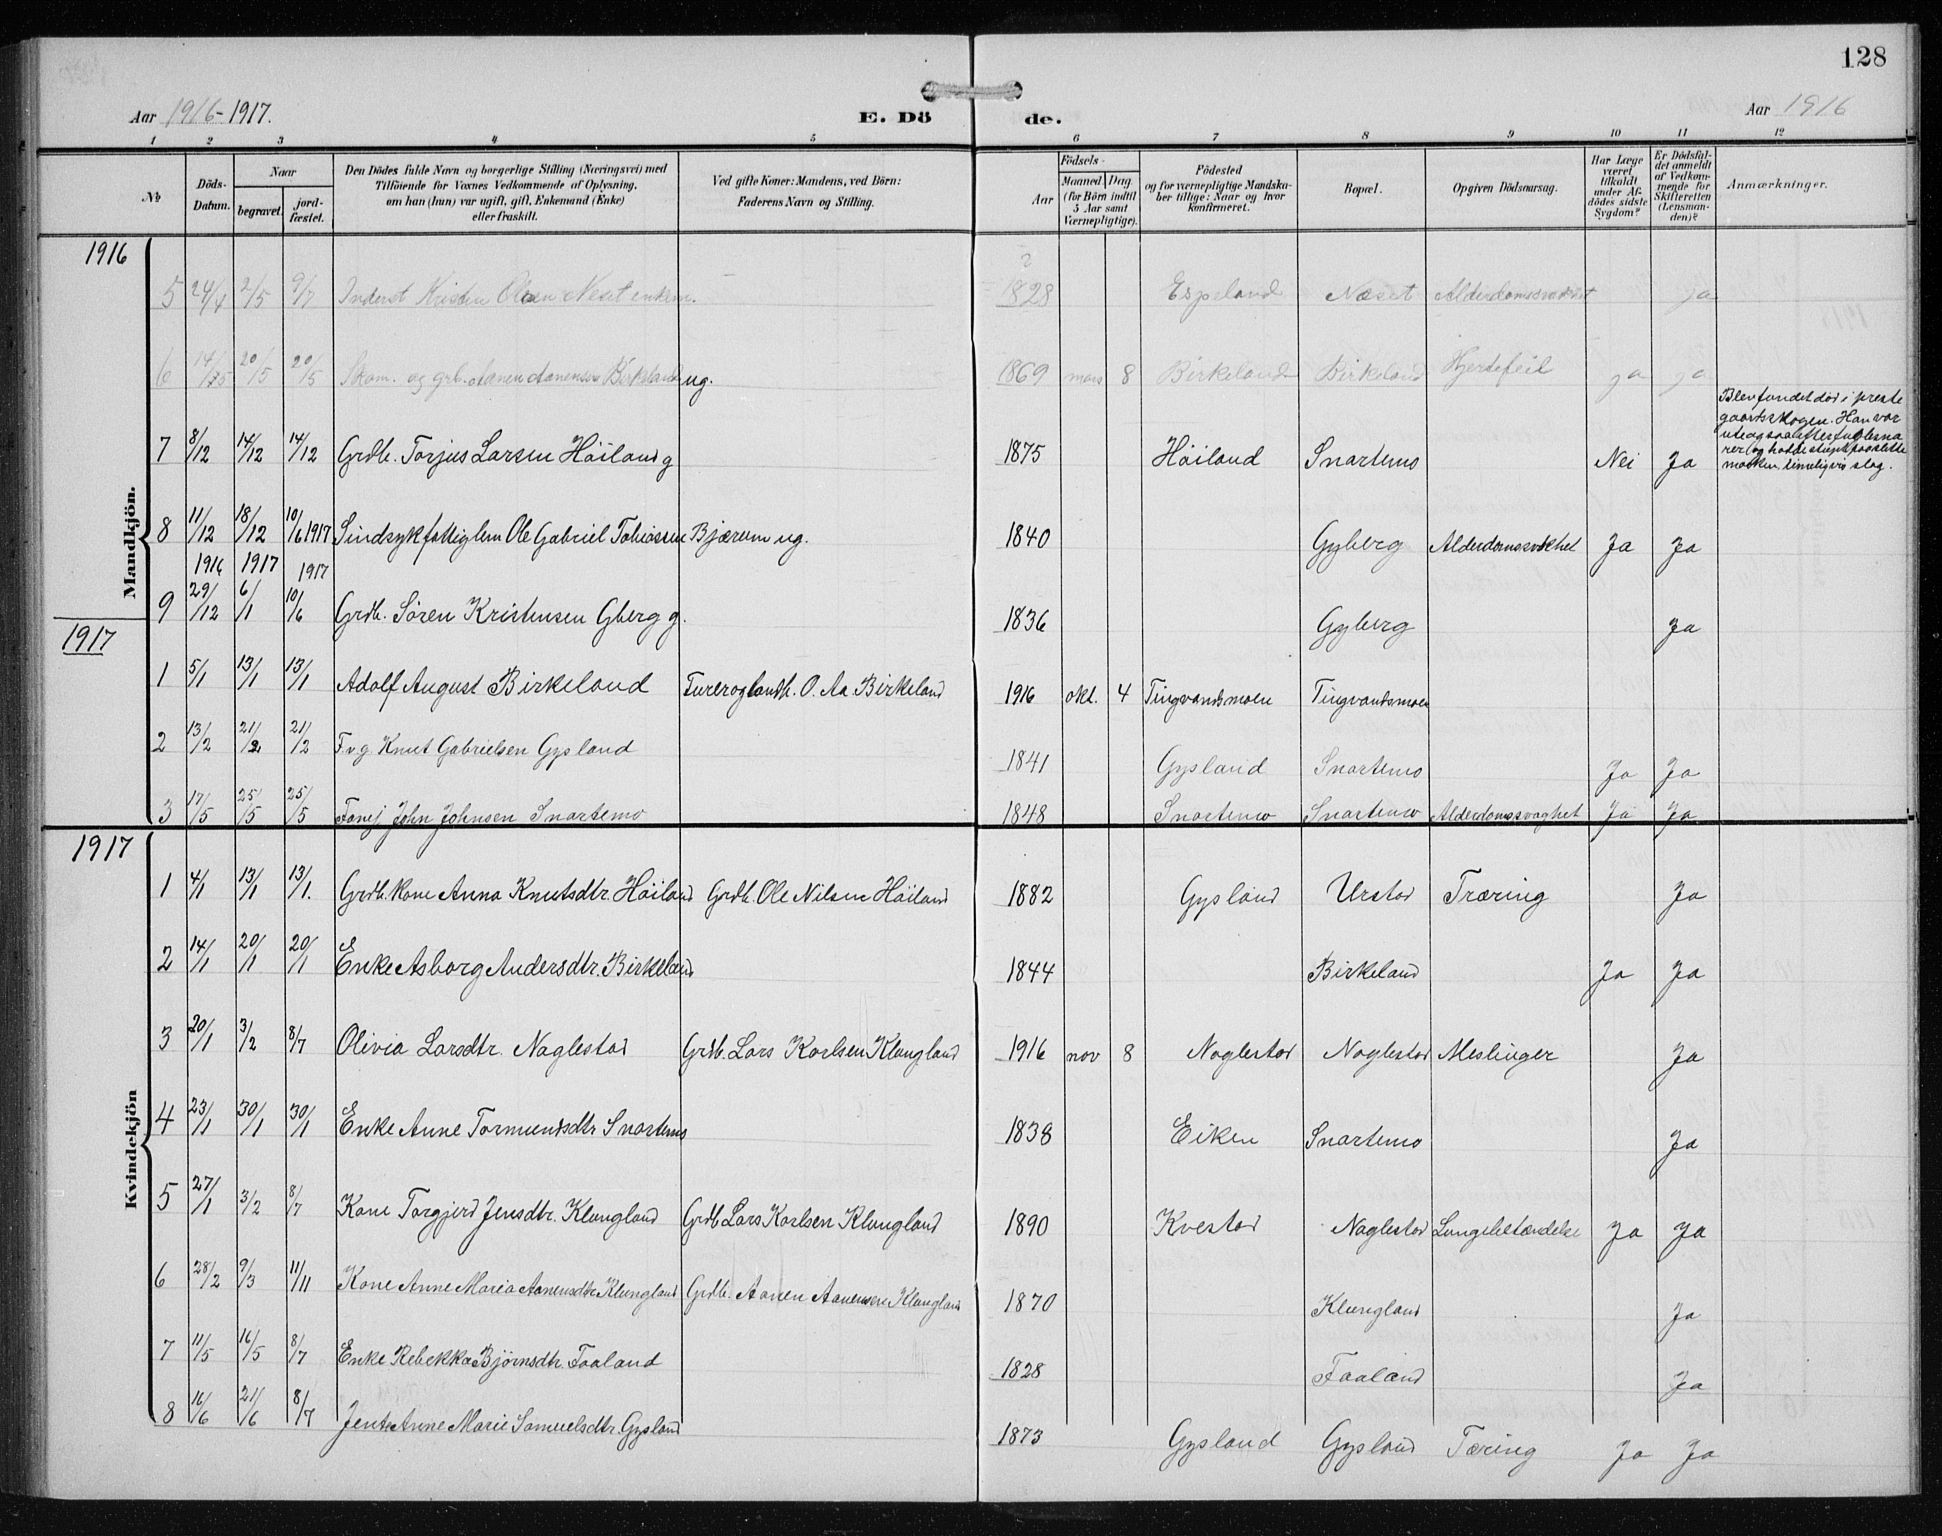 128
Aar 1916-1917.
E. Dö
de.
Aar 1916
1 2 3 4 5 6 7 8 9 10 11 12
No
Döds-Datum.
Naar
begravet.
jord-fæstet.
Den Dödes fulde Navn og borgerlige Stilling (Næringsvei) med
Tilföiende for Voxnes Vedkommende af Oplysning,
om han (hun) var ugift, gift, Enkemand (Enke)
eller fraskilt.
Ved gifte Koner: Mandens, ved Börn:
Faderens Navn og Stilling.
Födsels-
Aar
Maaned Dag
(for Börn indtil
5 Aar samt
Værnepligtige).
Födested
og for værnepligtige Mandska-
ber tillige: Naar og hvor
konfirmeret.
Bopæl.
Opgiven Dödsaarsag.
Har Læge
været
tilkaldt
under Af-
dödes sidste
Sygdom?
Er Dödsfal-
det anmeldt
af Vedkom-
mende for
Skifteretten
(Lensman-
den)?
Anmærkninger.
1916
Mandkjön.
5 24/4 2/5 9/7 Inderst Kristen Olsen Neset enkem. 1828 Espeland Næset Alderdomssvakhet ja
6 14/5 20/5 20/5 Skom. og grb. Aanen Aanensen Birkeland ug. 1869 mars 8 Birkeland Birkeland Hjertefeil ja ja
7 8/12 14/12 14/12 Grdb. Torjus Larsen Höiland g 1875 Höiland Snartemo Nei Ja
Blev fundet död i preste
gaardsskogen. Han var
ute og saa efter fuglesna
rer (og hadde stupt paa slette
marken. timeligvis slag.
8 11/12 18/12 10/6 1917 Sindsyk fattiglem Ole Gabriel Tobiassen Bjærum ug. 1840 Gyberg Alderdomssvakhet Ja Ja
1916 1917 1917
9 29/12 6/1 10/6 Grdb. Sören Kristensen Gberg g. 1836 Gyberg Ja
1917
1 5/1 13/1 13/1 Adolf August Birkeland O. Aa. Birkeland 1916 okt. 4 Tingvandsmoen Tingvandsmoen
2 13/2 21/2 21/2 Fvg Knut Gabrielsen Gysland 1841 Gysland Snartemo Ja Ja
3 17/5 25/5 25/5 John Johnsen Snartemo 1848 Snartemo Snartemo Alderdomssvaghet Ja Ja
1917
Kvindekjön
1 4/1 13/1 13/1. Grdb. Kone Anna Knutsdtr. Höiland Grdb. Ole Nilsen Höiland 1882 Gysland Urstad Træring Ja
2 14/1 20/1 20/1 Enke Asborg Andersdtr. Birkeland 1844 Birkeland Ja Ja
3 20/1 3/2 8/7 Olivia Larsdtr. Naglestad Grdb. Lars Karlsen Klungland 1916 nov 8 Naglestad Naglestad Meslinger Ja
4 23/1 30/1 30/1 Enke Anne Tormundsdtr Snartemo 1838 Eiken Snartemo Ja
5 27/1 3/2 8/7 Kone Torgjerd Jensdtr. Klungland Grdb Lars Karlsen Klungland 1890 Kvestad Naglestad Lungebetændelse Ja Ja
6 28/2 9/3 11/11 Kone Anne Maria Aanensdtr Klungland Grdb. Aanen Aanensen Klungland 1870 Klungland Ja
7 11/5 16/5 8/7 Enke Rebekka Björnsdtr. Faaland 1828 Faaland Ja
8 16/6 21/6 8/7 Jente Anne Marie Samuelsdtr. Gysland 1873 Gysland Gysland Tæring Ja Ja